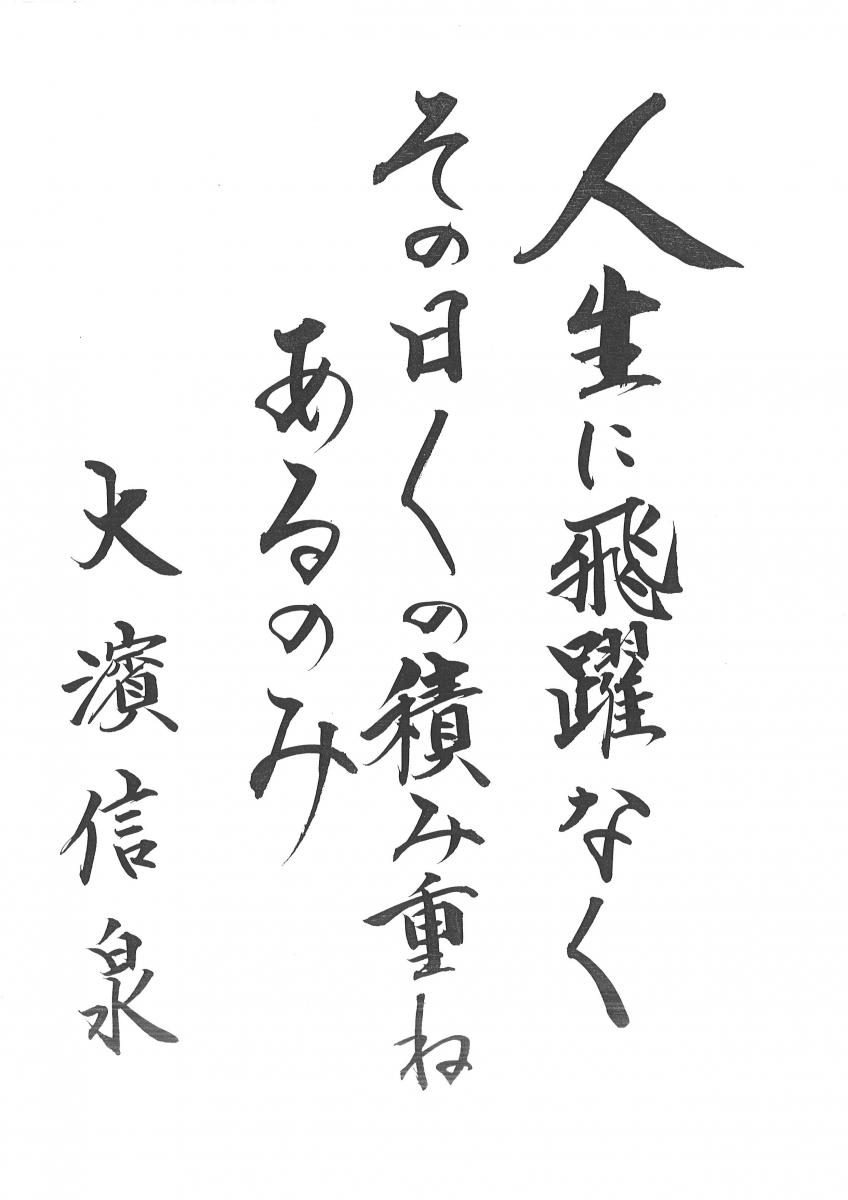 人生に飛躍なく
その日〱の積み重ね
あるのみ
大濱信泉